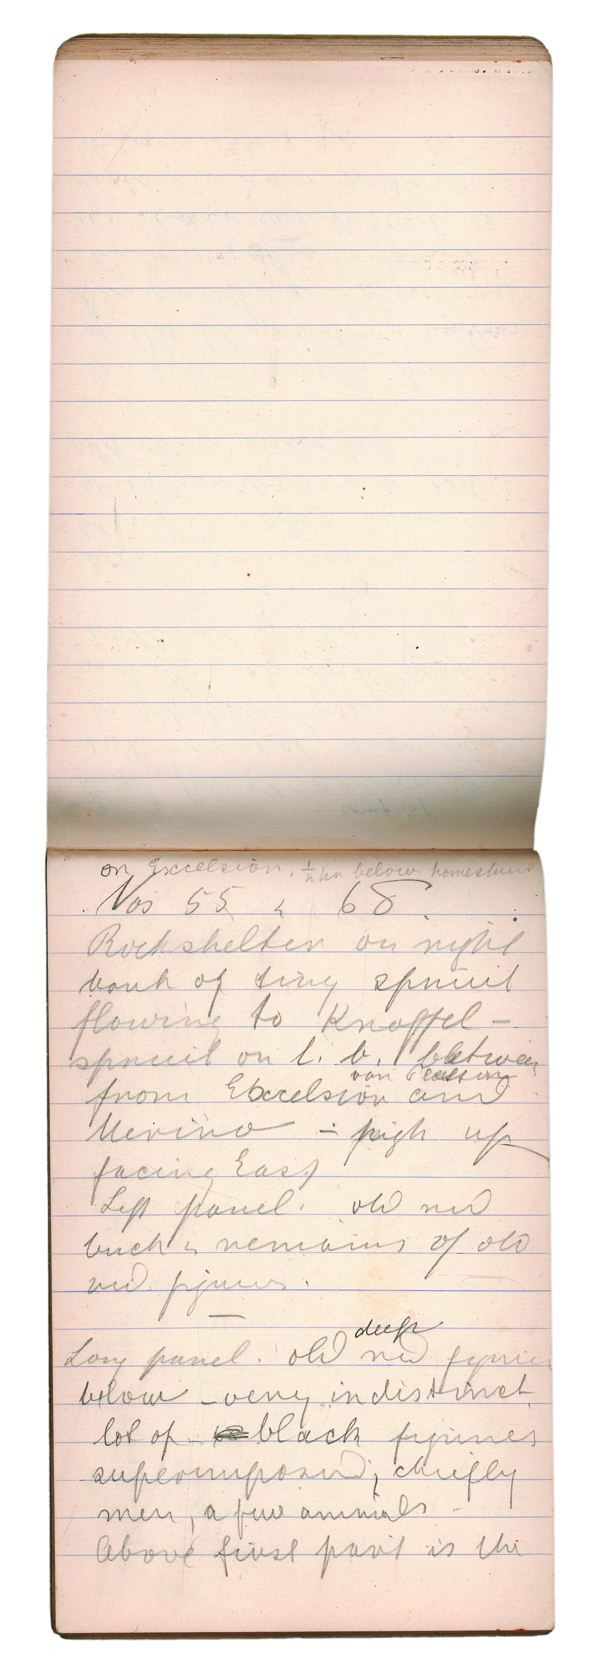 on Excelsior. ½ hr below homestead
Nos 55 & 68
Rockshelter on right
bank of tiny spruit
flowing to Knoffel-
spruit on l. b. between
van
from Excelsior and
Merino - high up
facing East
Left panel. old red
buck & remains of old
red figures.
deep
Long panel. old red figures
below - very indistinct
lot of black figures
superimposed, chiefly
men, a few animals -
Above first part is the